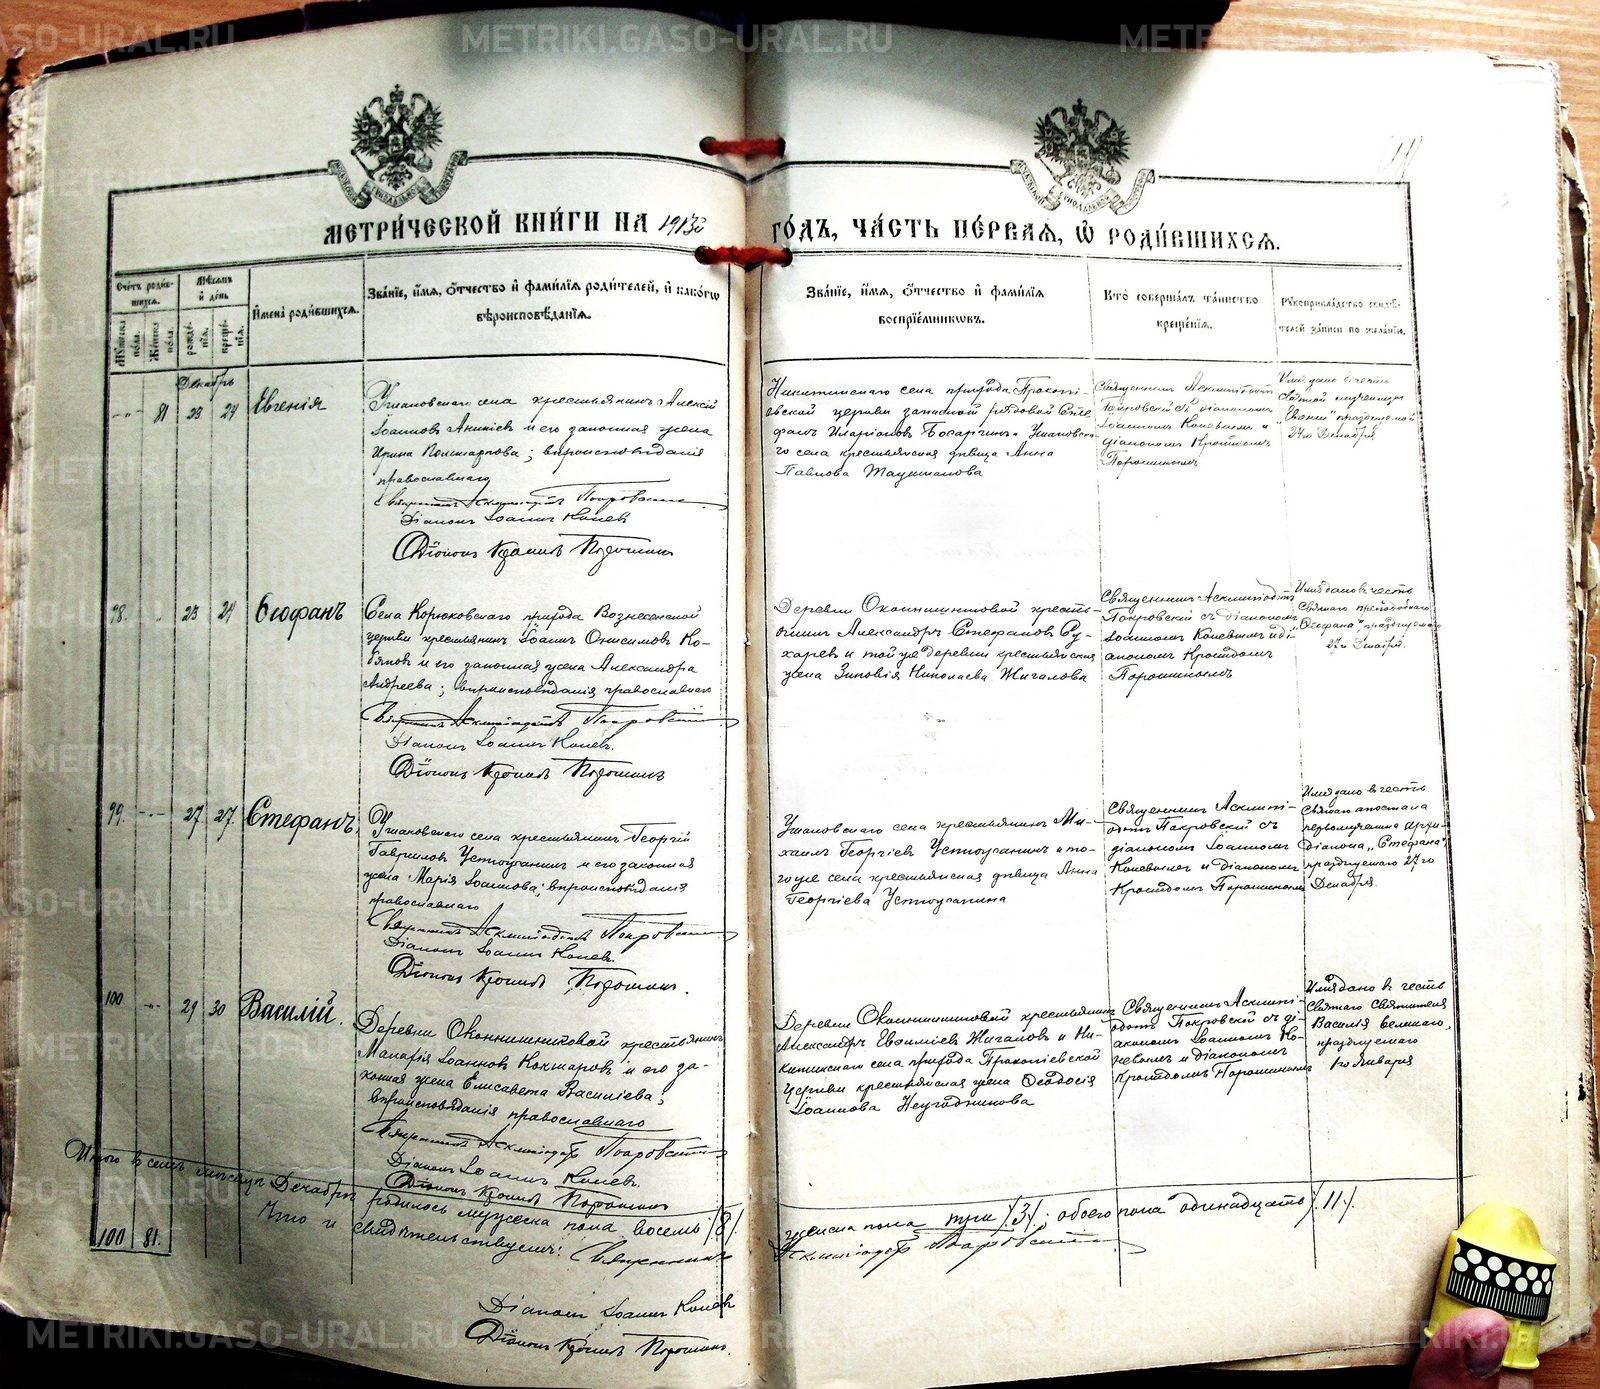 METRIKI.GASO-URAL.RU
МЕТРИ́ЧЕСКОЙ КНИ́ГИ НА 1913й ГО́ДЪ, ЧА́СТЬ ПЕ́РВАЯ, Ѡ РОДИ́ВШИХСЯ.
Сче́тъ роди́в-
шихся.
Му́жеска пола.
Же́нска пола.
Мѣ́сяцъ
и҆ де́нь
рожде́-
нїя.
креще́-
нїя.
И҆мена̀ роди́вшихся.
Зва́нїе, и҆́мя, ѻ҆́тчество и҆ фами́лїя роди́телей, и҆ како́гѡ
вѣроисповѣ́данїя.
Зва́нїе, и҆́мя, ѻ҆́тчество и҆ фами́лїя
воспрїе́мникѡвъ.
Кто̀ соверша́лъ та́инство
креще́нїя.
Рꙋкоприкла́дство свидѣ́-
телей за́писи по жела́нїю.
Декабрь
81 23 24 Евгенія
Ушаковскаго села крестьянинъ Алексій
Іоанновъ Аникіевъ и его законная жена
Ирина Поликарпова; вѣроисповѣданія
православнаго
Священникъ Асклипіодотъ Покровскій
Діаконъ Іоаннъ Коневъ
Діаконъ Кронидъ Порошинъ
Никитинскаго села прихода Прокопі-
евской церкви запасной рядовой Сте-
фанъ Иларіоновъ и Ушаковска-
го села крестьянская дѣвица Анна
Павлова
Священникъ Асклипіодотъ
Покровскій съ діакономъ
Іоанномъ Коневымъ и
діакономъ Кронидомъ
Порошинымъ
Имя дано въ честь
Святой мученицы
"Евгеніи" празднуемой
24го Декабря
98. 23 24 Ѳеофанъ
Села Корюковскаго прихода Вознесенской
церкви крестьянинъ Іоаннъ Онисимовъ Ко-
бяковъ и его законная жена Александра
Андреева; вѣроисповѣданія православнаго
Священникъ Асклипіодотъ Покровскій
Діаконъ Іоаннъ Коневъ.
Діаконъ Кронидъ Порошинъ
Деревни Оконишниковой кресть-
янинъ Александръ Стефановъ Су-
харевъ и той же деревни крестьянская
жена Зиновія Николаева Жигалова
Священникъ Асклипіодотъ
Покровскій съ діакономъ
Іоанномъ Коневымъ и ді-
акономъ Кронидомъ
Порошинымъ
Имя дано въ честь
Святаго преподобнаго
"Ѳеофана" празднуемаго
27го Декабря.
99. 27 27. Стефанъ
Ушаковскаго села крестьянинъ Георгій
Гавриловъ Устюжанинъ и его законная
жена Марія Іоаннова; вѣроисповѣданія
православнаго
Священникъ Асклипіодотъ Покровскій
Діаконъ Іоаннъ Коневъ.
Діаконъ Кронидъ Порошинъ.
Ушаковскаго села крестьянинъ Ми-
хаилъ Георгіевъ Устюжанинъ и то-
го же села крестьянская дѣвица Анна
Георгіева Устюжанина
Священникъ Асклипі-
одотъ Покровскій съ
діакономъ Іоанномъ
Коневымъ и діакономъ
Кронидомъ Порошинымъ
Имя дано въ честь
Святаго апостола
первомученика архи-
діакона "Стефана"
празднуемаго 27го
Декабря.
100 29 30 Василій.
Деревни Оконишниковой крестьянинъ
Макарій Іоанновъ Кокшаровъ и его за-
конная жена Елисавета Василіева;
вѣроисповѣданія православнаго
Священникъ Асклипіодотъ Покровскій
Діаконъ Іоаннъ Коневъ.
Діаконъ Кронидъ Порошинъ
Деревни Оконишниковой крестьянинъ
Александръ Евфиміевъ Жигаловъ и Ни-
китинскаго села прихода Прокопіевской
церкви крестьянская жена Ѳеодосія
Іоаннова Неугодникова
Священникъ Асклипі-
одотъ Покровскій съ ді-
акономъ Іоанномъ Ко-
невымъ и діакономъ
Кронидомъ Порошинымъ
Имя дано въ честь
Святаго Святителя
Василія великаго,
празднуемаго
1го Января
Итого въ семъ мѣсяцѣ Декабрѣ родилось мужеска пола восемь /8/, женска пола три /3/, обоего пола одинадцать /11./
100 81.
Что и свидѣтельствуемъ: Священникъ Асклипіодотъ Покровскій
Діаконъ Іоаннъ Коневъ
Діаконъ Кронидъ Порошинъ.